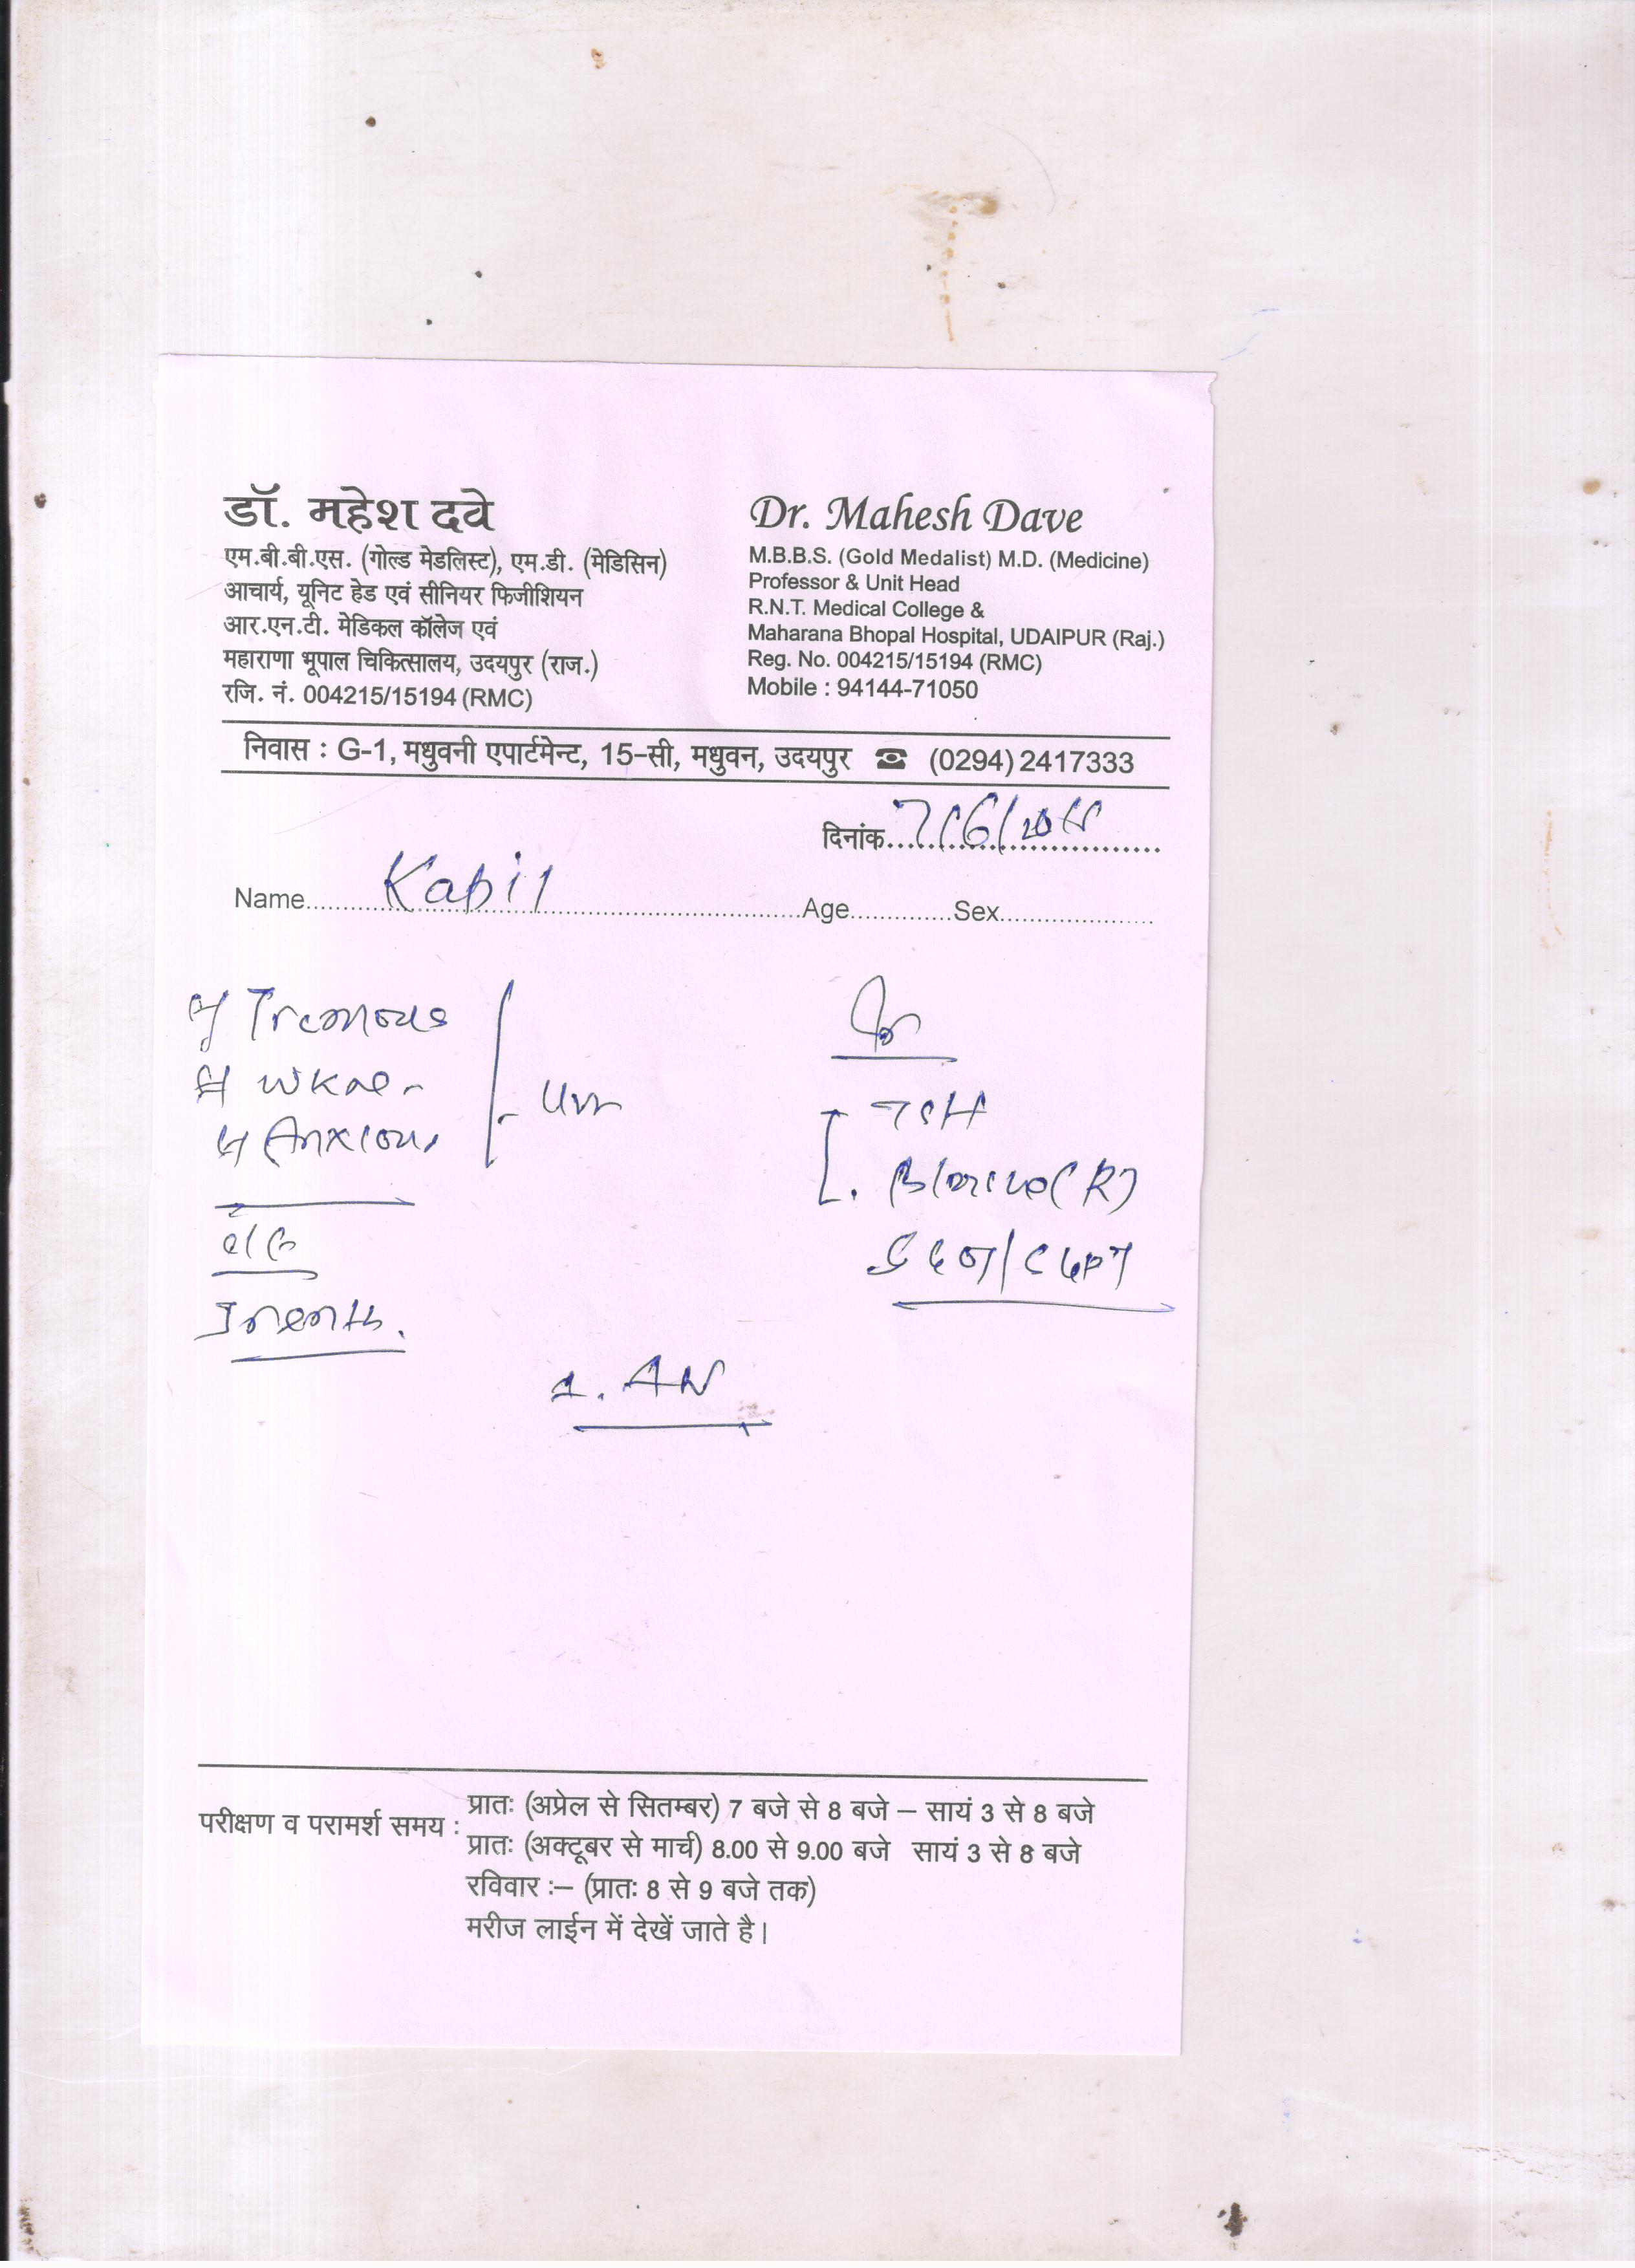 डॉ. महेश दवे
एम.बी.बी.एस. (गोल्ड मेडलिस्ट), एम.डी. (मेडिसिन)
आचार्य, यूनिट हेड एवं सीनियर फिजीशियन
आर.एन.टी. मेडिकल कॉलेज एवं
महाराणा भूपाल चिकित्सालय, उदयपुर (राज.)
रजि. नं. 004215/15194 (RMC)
Dr. Mahesh Dave
M.B.B.S. (Gold Medalist) M.D. (Medicine)
Professor & Unit Head
R.N.T. Medical College &
Maharana Bhopal Hospital, UDAIPUR (Raj.)
Reg. No. 004215/15194 (RMC)
Mobile : 94144-71050
निवास : G-1, मधुवनी एपार्टमेन्ट, 15-सी, मधुवन, उदयपुर ☎ (0294) 2417333
दिनांक
Name Kapil Age Sex
Tremous
Anxious
TSH
(R)
1. AN
परीक्षण व परामर्श समय : प्रातः (अप्रेल से सितम्बर) 7 बजे से 8 बजे – सायं 3 से 8 बजे
प्रातः (अक्टूबर से मार्च) 8.00 से 9.00 बजे सायं 3 से 8 बजे
रविवार :– (प्रातः 8 से 9 बजे तक)
मरीज लाईन में देखें जाते है।